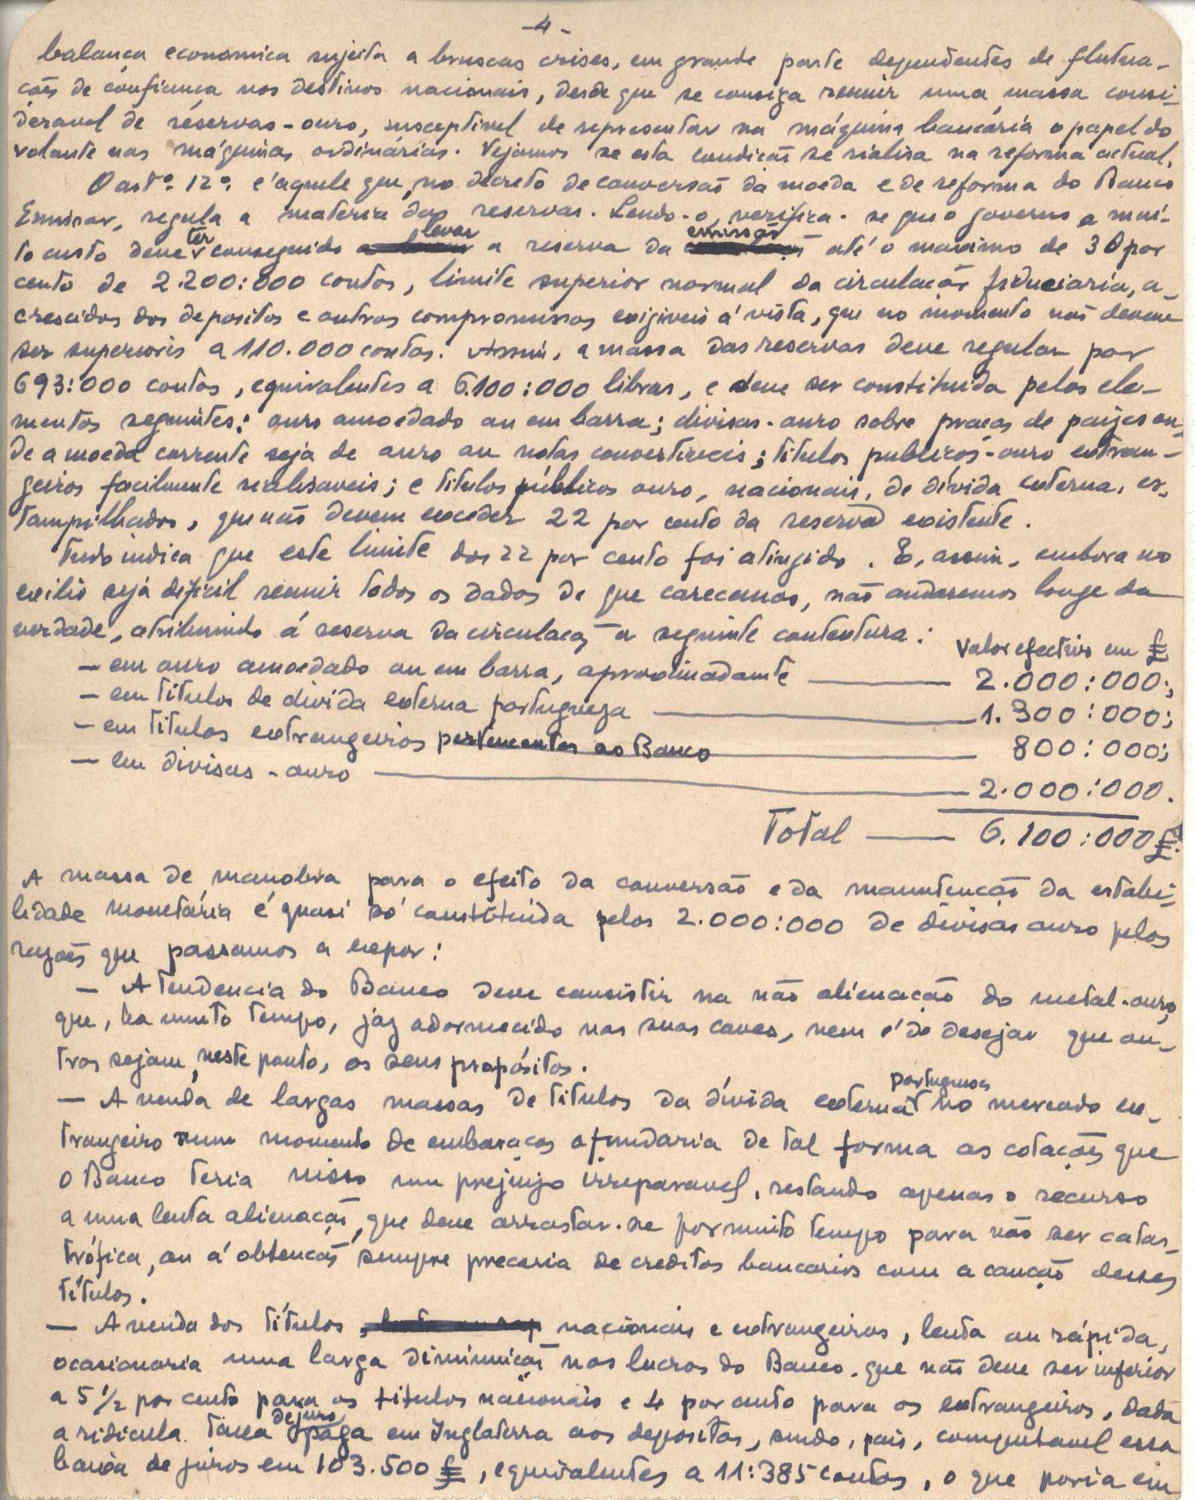 -4-
balança economica sujeita a bruscas crises, em grande parte dependentes de flutua-
ções de confiança nos destinos nacionais, desde que se consiga reunir uma massa consi-
deravel de résérvas-ouro, susceptivel de representar na máquina bancária o papel do
volante nas máquinas ordinárias. Vejamos se esta condição se rialisa na reforma actual.
O artº. 12º. é aquele que, no decreto de conversão da moeda e de reforma do Banco
Emissor, regula a materia das reservas. Lendo-o, verifica-se que o governo a mui-
to custo deve ter conseguido levar a reserva da emissão até o maximo de 30 por
cento de 2.200:000 contos, limite superior normal da circulação fiduciaria, a-
crescidos dos depositos e outros compromissos exigiveis á vista, que no momento não devem
ser superiores a 110.000 contos. Assim, a massa das reservas deve regular por
693:000 contos, equivalentes a 6.100:000 libras, e deve ser constituida pelos ele-
mentos seguintes: ouro amoedado ou em barra; divisas-ouro sobre praças de paizes on-
de a moeda corrente seja de ouro ou notas convertiveis; titulos publicos-ouro extran-
geiros facilmente realisaveis; e titulos públicos ouro, nacionais, de dívida externa, es-
tampilhados, que não devem exceder 22 por cento da reserva existente.
Tudo indica que este limite dos 22 por cento foi atingido. E, assim, embora no
exilio seja dificil reunir todos os dados de que carecemos, não andaremos longe da
verdade, atribuindo á reserva da circulação a seguinte contextura:
Valor efectivo em £
– em ouro amoedado ou em barra, aproximadamente — 2.000:000;
– em titulos de divida externa portugueza — 1.300:000;
– em titulos extrangeiros pertencentes ao Banco — 800:000;
– em divisas-ouro — 2.000:000.
Total — 6.100:000 £.
A massa de manobra para o efeito da conversão e da manutenção da estabi-
lidade monetária é quasi só constituida pelos 2.000:000 de divisas ouro pelas
razões que passamos a expor:
– A tendencia do Banco deve consistir na não alienação do metal-ouro,
que, ha muito tempo, jaz adormecido nas suas caves, nem é de desejar que ou-
tros sejam, neste ponto, os seus propósitos.
– A venda de largas massas de titulos da dívida externa portuguesa no mercado ex-
trangeiro num momento de embaraços afundaria de tal forma as cotações que
o Banco teria nisso um prejuizo irreparavel, restando apenas o recurso
a uma lenta alienação, que deve arrastar-se por muito tempo para não ser catas-
trófica, ou á obtenção sempre precaria de creditos bancarios com a caução desses
títulos.
– A venda dos títulos, nacionais e extrangeiros, lenta ou rápida,
ocasionaria uma larga diminuição nos lucros do Banco, que não deve ser inferior
a 5 1/2 por cento para os titulos nacionais e 4 por cento para os extrangeiros, dada
a ridicula taxa de juro paga em Inglaterra aos depositos, sendo, pois, computavel essa
baixa de juros em 103.500 £, equivalentes a 11:385 contos, o que poria em